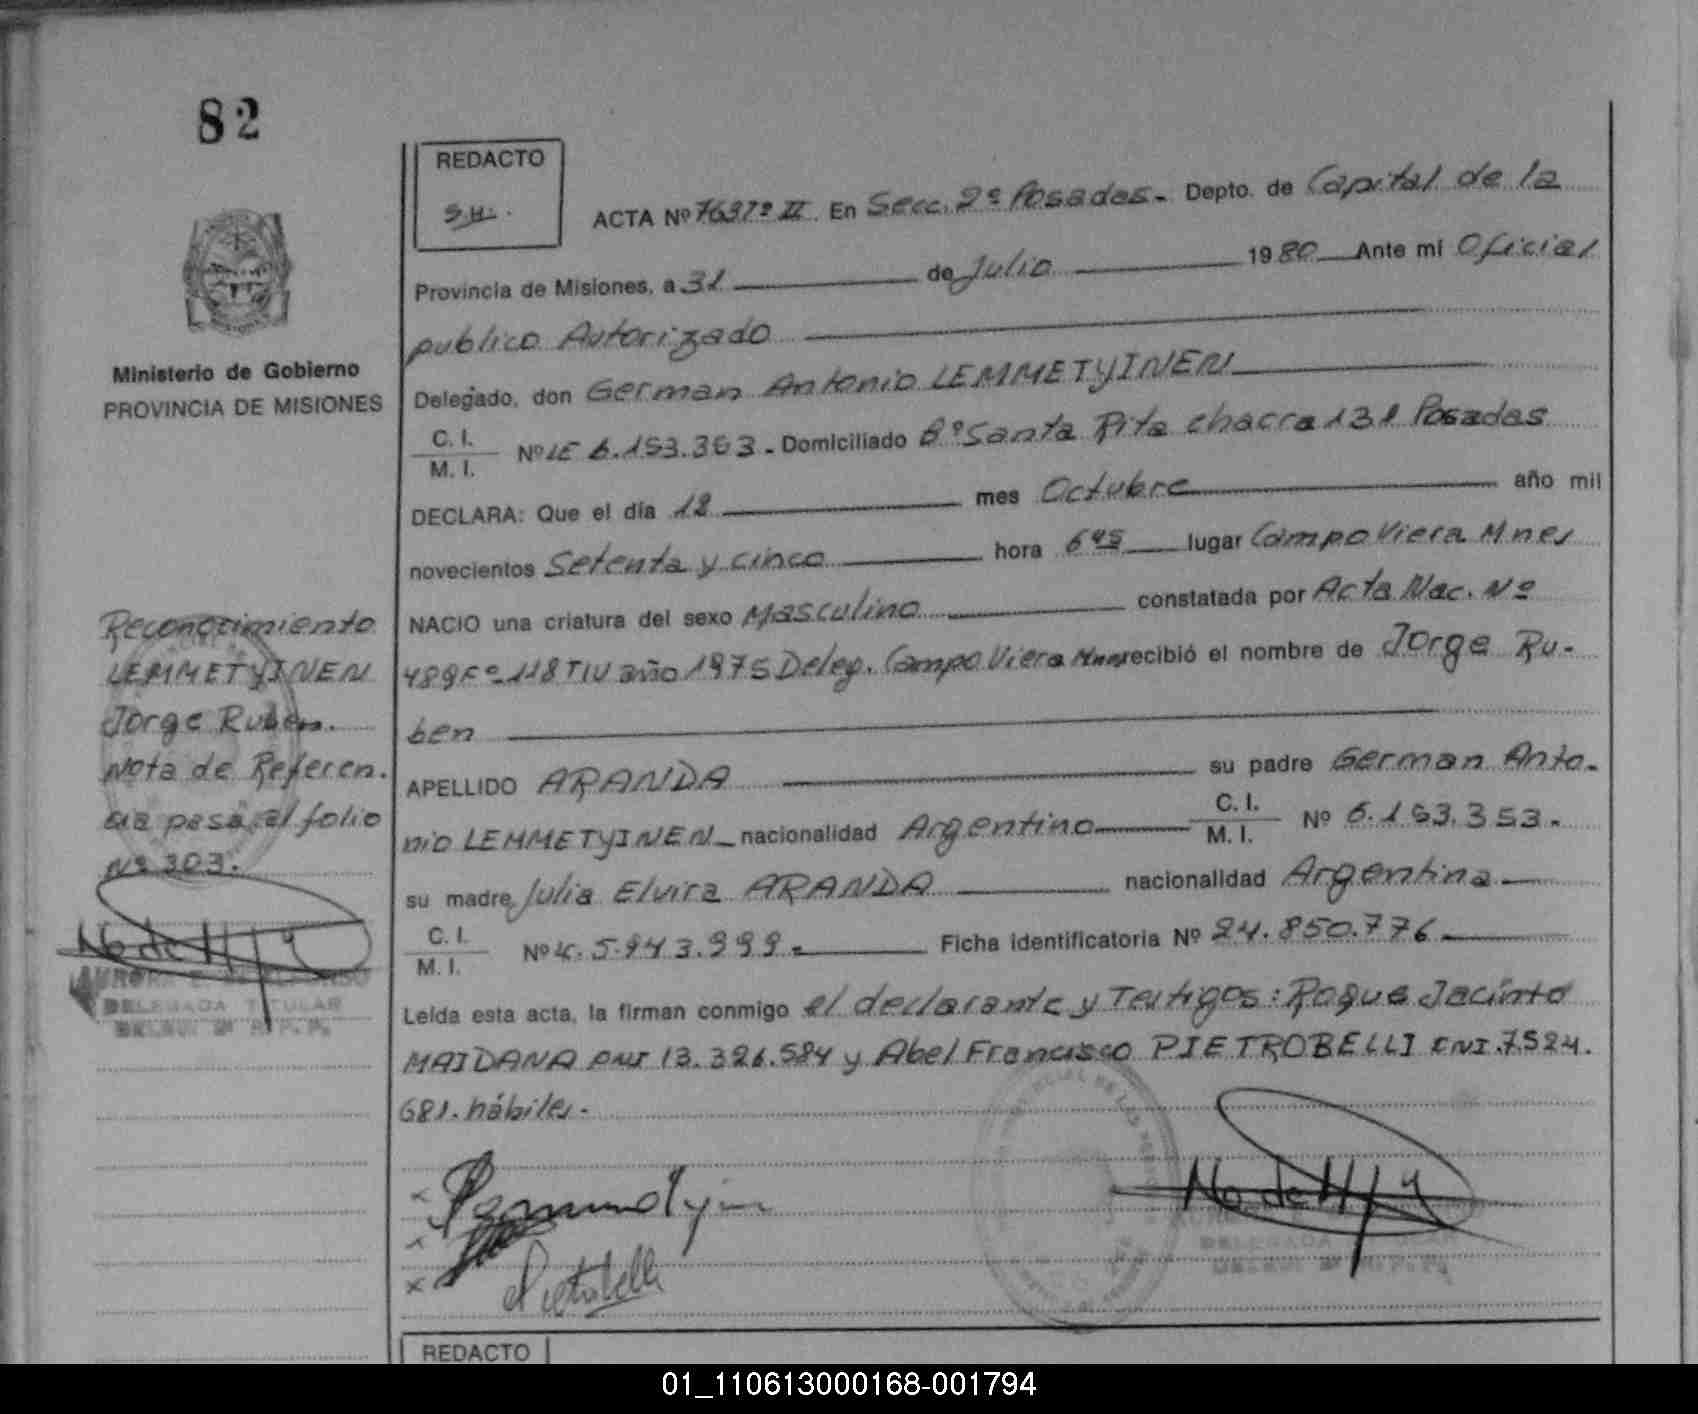 82
REDACTO
S.H.
ACTA Nº 763 Tº II En Secc. 2º Posadas. Depto. de Capital de la
Provincia de Misiones, a 31 de Julio 1980 Ante mi Oficial
publico Autorizado
Delegado, don German Antonio LEMMETYINEN
C. I.
M. I.
Nº LE Domiciliado Bº Santa Rita chacra 131 Posadas
DECLARA: Que el día 12 mes Octubre año mil
novecientos Setenta y cinco hora 6 45 lugar Campo Viera Mnes
NACIO una criatura del sexo Masculino constatada por Acta Nac. Nº
489 Fº 118 T IV año 1975 Deleg. Campo Viera Mnes recibió el nombre de Jorge Ru-
ben
APELLIDO ARANDA su padre German Anto-
nio LEMMETYINEN nacionalidad Argentino C. I.
M. I.
Nº 6.153.353.
su madre Julia Elvira ARANDA nacionalidad Argentina
C. I.
M. I.
Nº LC. 5.943.999. Ficha identificatoria Nº 24.850.776
Leída esta acta, la firman conmigo el declarante y Testigos: Roque Jacinto
MAIDANA DNI 13.326.584 y Abel Francisco PIETROBELLI DNI. 7.524.
681. hábiles.
Pietrobelli
DELEGADA
Ministerio de Gobierno
PROVINCIA DE MISIONES
Reconocimiento
LEMMETYINEN
Jorge Ruben.
Nota de Referen.
cia pasa al folio
Nº 303.
DELEGADA TITULAR
REDACTO
01_110613000168-001794